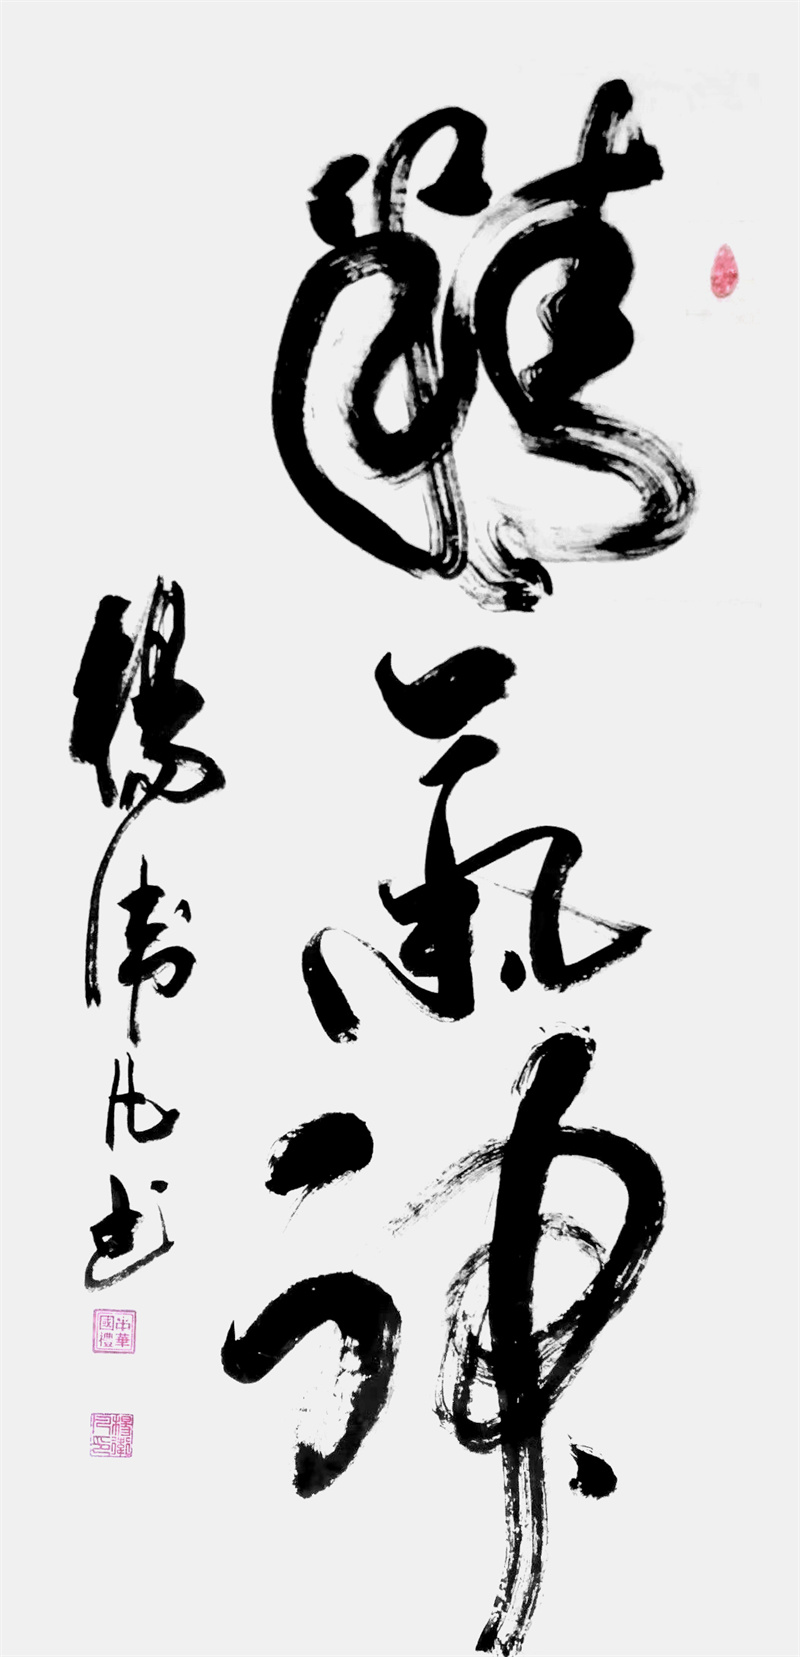 精氣神
楊衛凡书
中華國禮
楊衛凡印